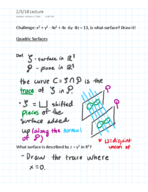 2/3/16 Lecture
Challenge: x² + y² - 4x² + 4x - 6y - 8z = 13, is what surface? Draw it!
Quadric Surfaces
Def S - surface in ℝ³
P - plane in ℝ³
the curve C = S ∩ P is the
trace of S in P
• S = ⊔ shifted
pieces of the
surface added
up (along the normal
of P)
* ⊔ = disjoint
union of
What surface is described by z = y² in ℝ³?
- Draw the trace where
x = 0.